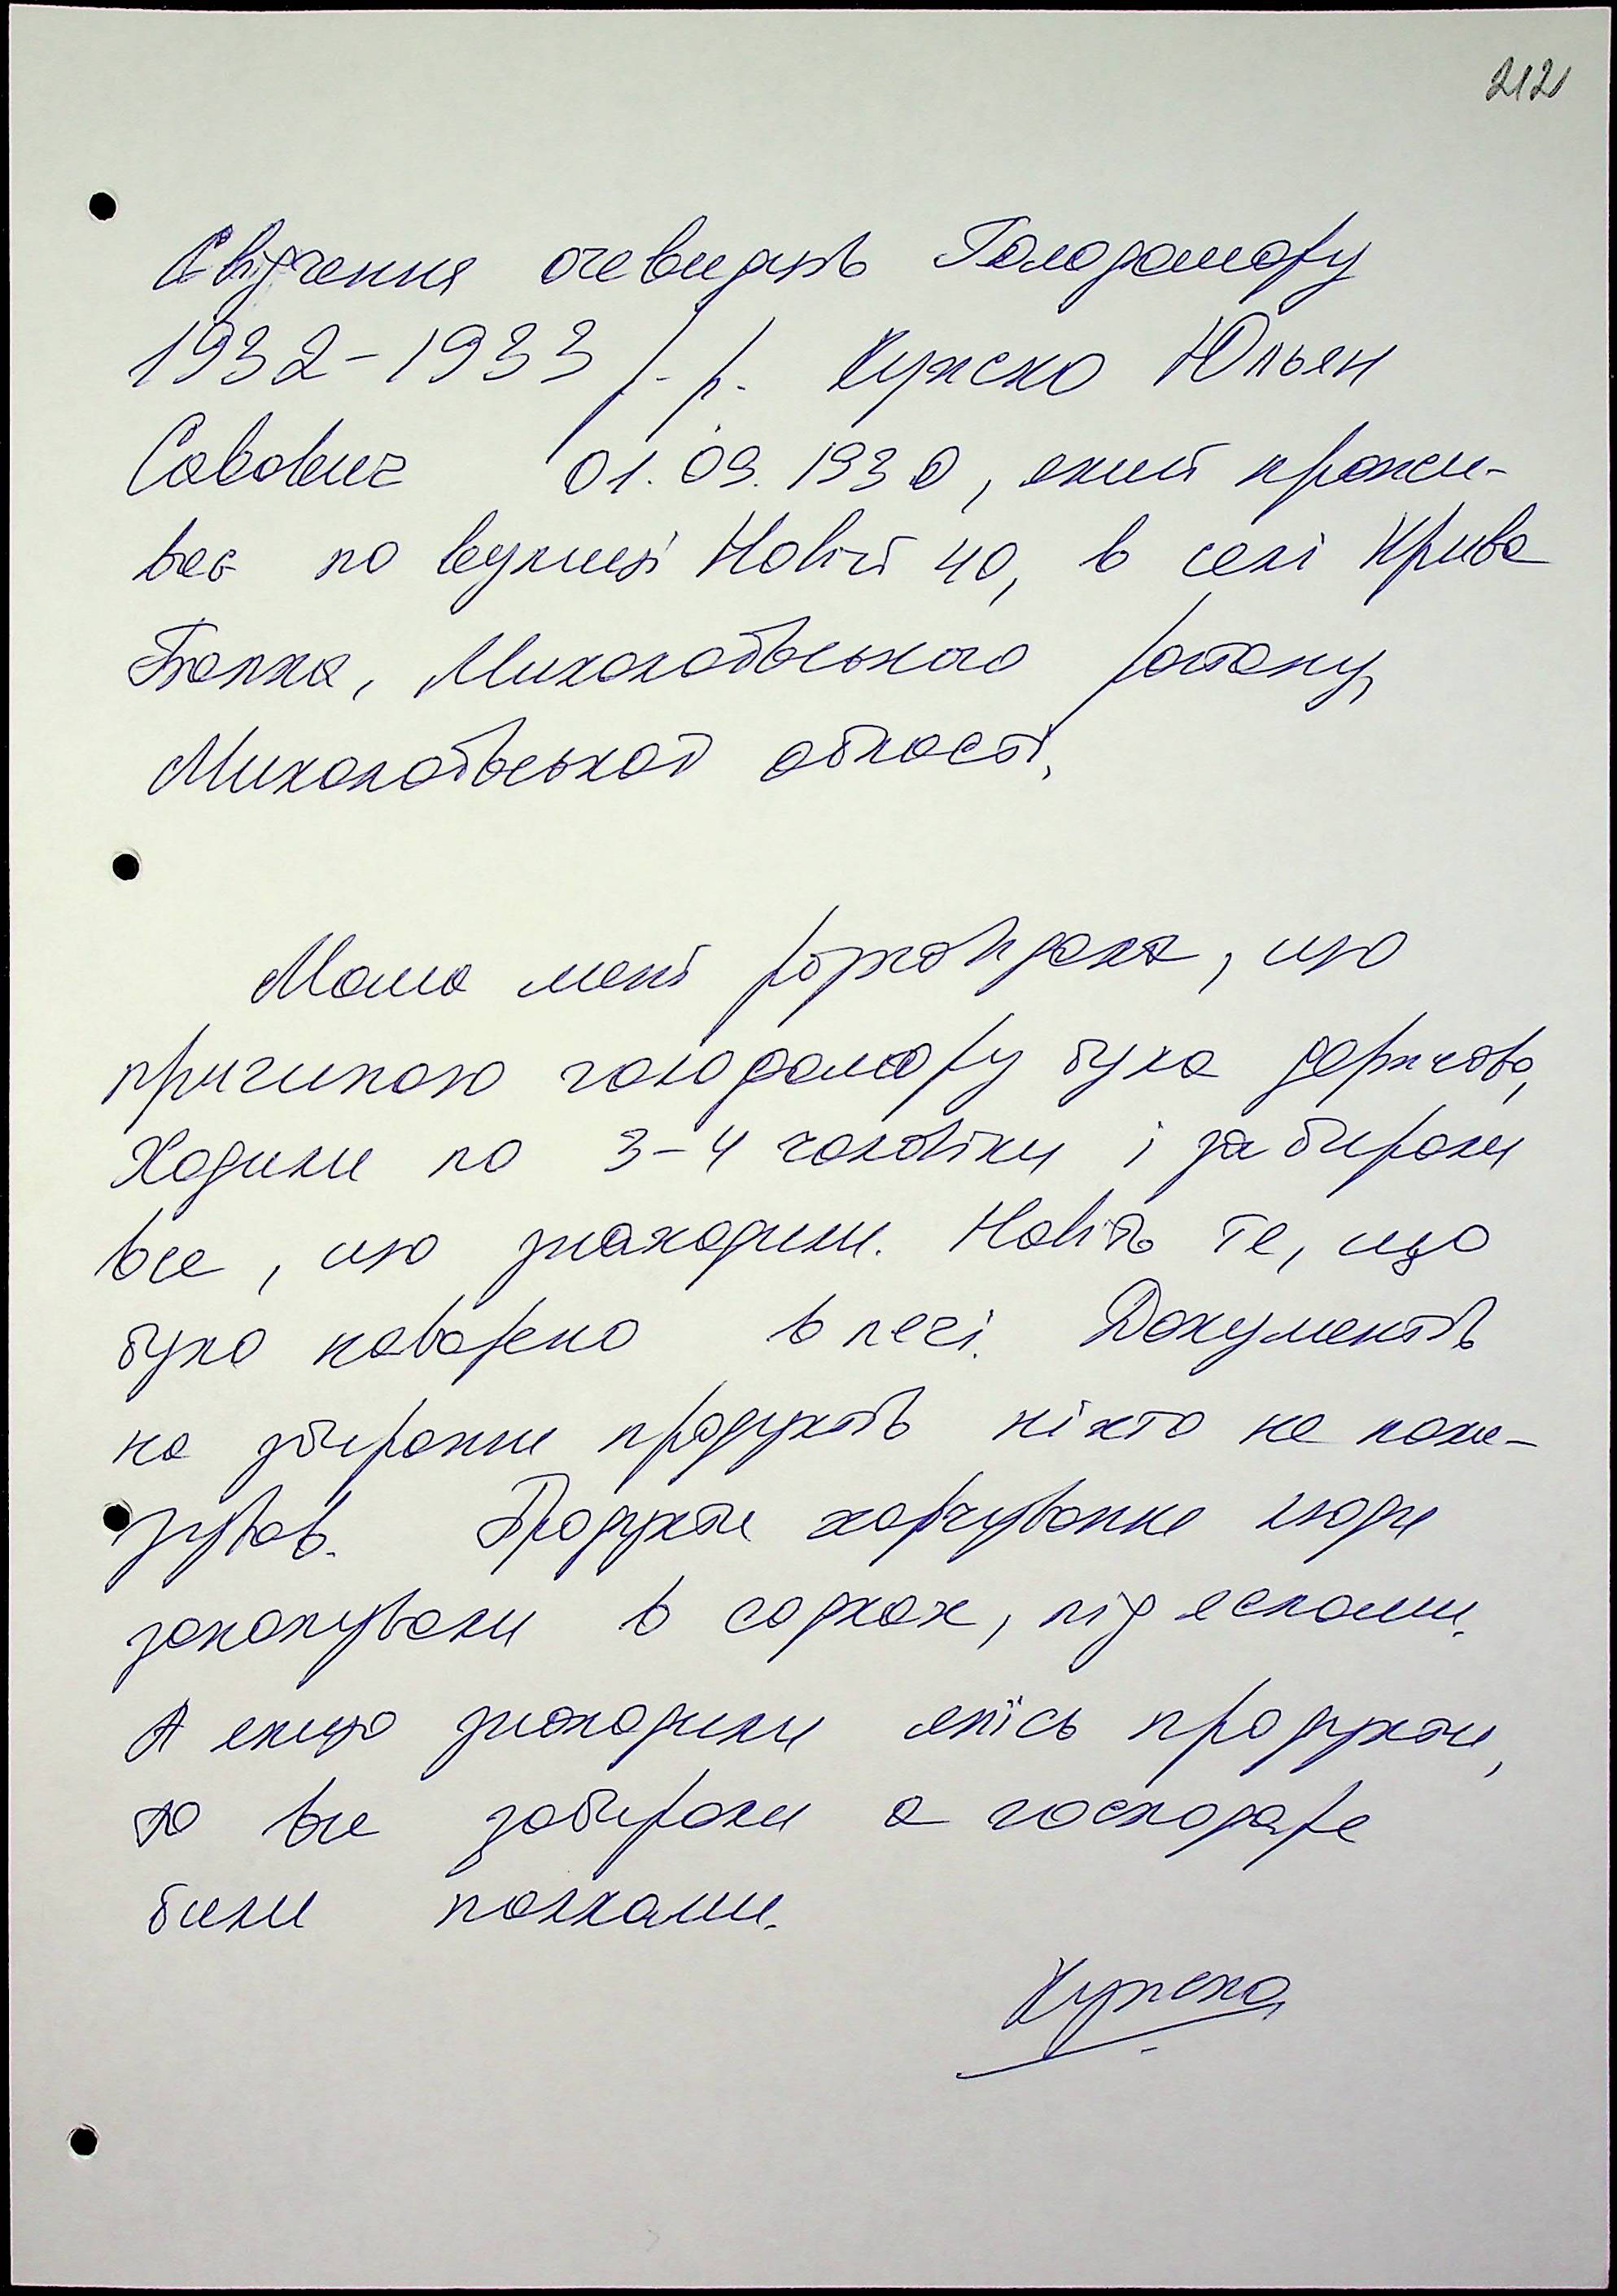 212
Свідчення очевидців Голодомору
1932-1933 р.р. Кужско Юльян
Савович 01.09.1930, який прожи-
ває по вулиці Новій 40, в селі Крива
Балка, Миколаївського району,
Миколаївської області.
Мама мені розповідала, що
причиною голодомору була держава,
Ходили по 3-4 чоловіки і забирали
все, що знаходили. Навіть те, що
було наварено в печі. Документів
на збирання продуктів ніхто не пока-
зував. Продукти харчування люди
закопували в садках, під яслами.
А якщо знаходили якісь продукти,
то все забирали а господаря
били палками.
Кужско